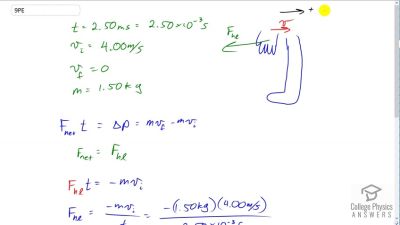 9PE
t = 2.50ms = 2.50 x 10⁻³ s
→ +
v
v_i = 4.00 m/s
F_he
v_f = 0
m = 1.50 kg
F_net t = Δp = mv_f - mv_i
F_net = F_he
F_he t = -mv_i
F_he = -mv_i / t = -(1.50kg)(4.00m/s) / 2.50 x 10⁻³ s
College Physics
ANSWERS